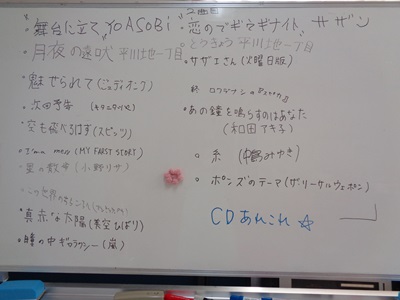 舞台に立て YOASOBI
月夜の遠吠 平川地一丁目
魅せられて(ジュディオング)
次回予告
空も飛べるはず(スピッツ)
(MY FARST START)
星の数 (小野リサ)
真赤な太陽(美空ひばり)
瞳の中ギャラクシー(嵐)
2曲目
恋のブギウギナイト、サザン
とうきょう平川地一丁目
サザエさん(火曜日版)
終
あの鐘を鳴らすのはあなた
(和田アキ子)
糸 (中島みゆき)
ポンズのテーマ(ザ・リーサルウェポンズ)
CDあれこれ☆